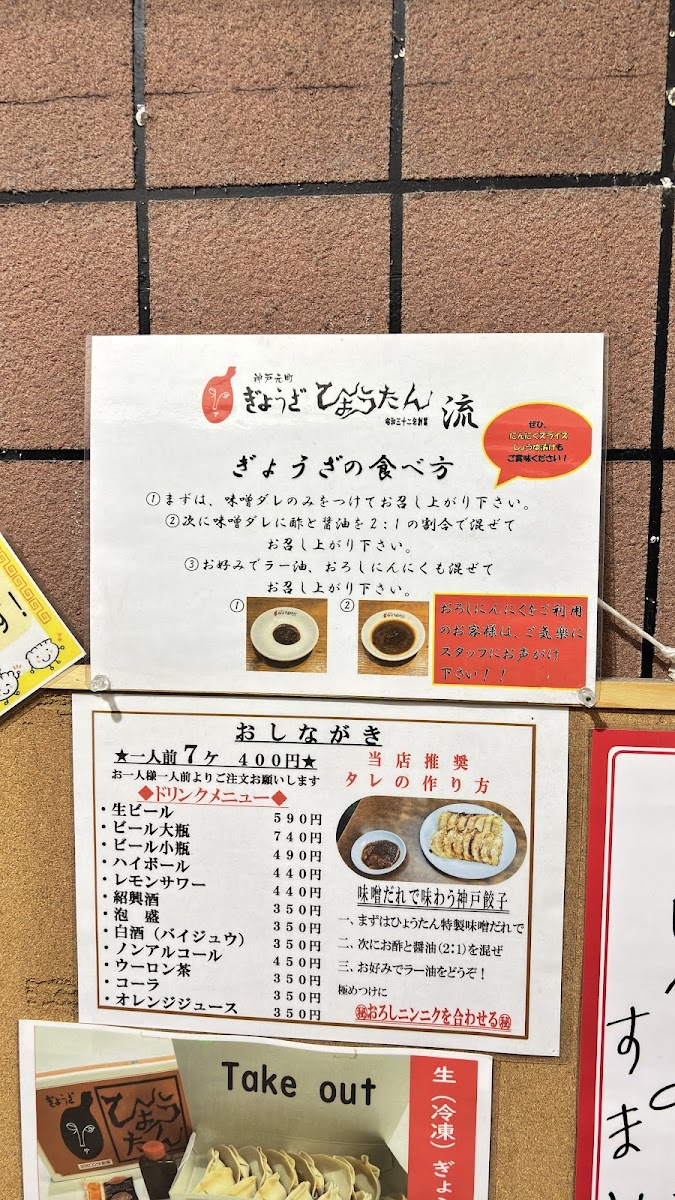 神戸元町
ぎょうざ ひょうたん 流
昭和三十二年創業
ぜひ、
にんにくスライス
しょうゆ漬けも
ご賞味ください!
ぎょうざの食べ方
①まずは、味噌ダレのみをつけてお召し上がり下さい。
②次に味噌ダレに酢と醤油を2:1の割合で混ぜて
お召し上がり下さい。
③お好みでラー油、おろしにんにくも混ぜて
お召し上がり下さい。
① ②
おろしにんにくをご利用
のお客様は、ご気楽に
スタッフにお声がけ
下さい!!
す!
おしながき
★一人前7ケ 400円★
お一人様一人前よりご注文お願いします
◆ドリンクメニュー◆
・生ビール 590円
・ビール大瓶 740円
・ビール小瓶 490円
・ハイボール 440円
・レモンサワー 440円
・紹興酒 350円
・泡 盛 350円
・白酒(バイジュウ) 350円
・ノンアルコール 450円
・ウーロン茶 350円
・コーラ 350円
・オレンジジュース 350円
当店推奨
タレの作り方
味噌だれで味わう神戸餃子
一、まずはひょうたん特製味噌だれで
二、次にお酢と醤油(2:1)を混ぜ
三、お好みでラー油をどうぞ!
極めつけに
㊙おろしニンニクを合わせる㊙
Take out
ぎょうざ
ひょうたん
生(冷凍)ぎょ
すま